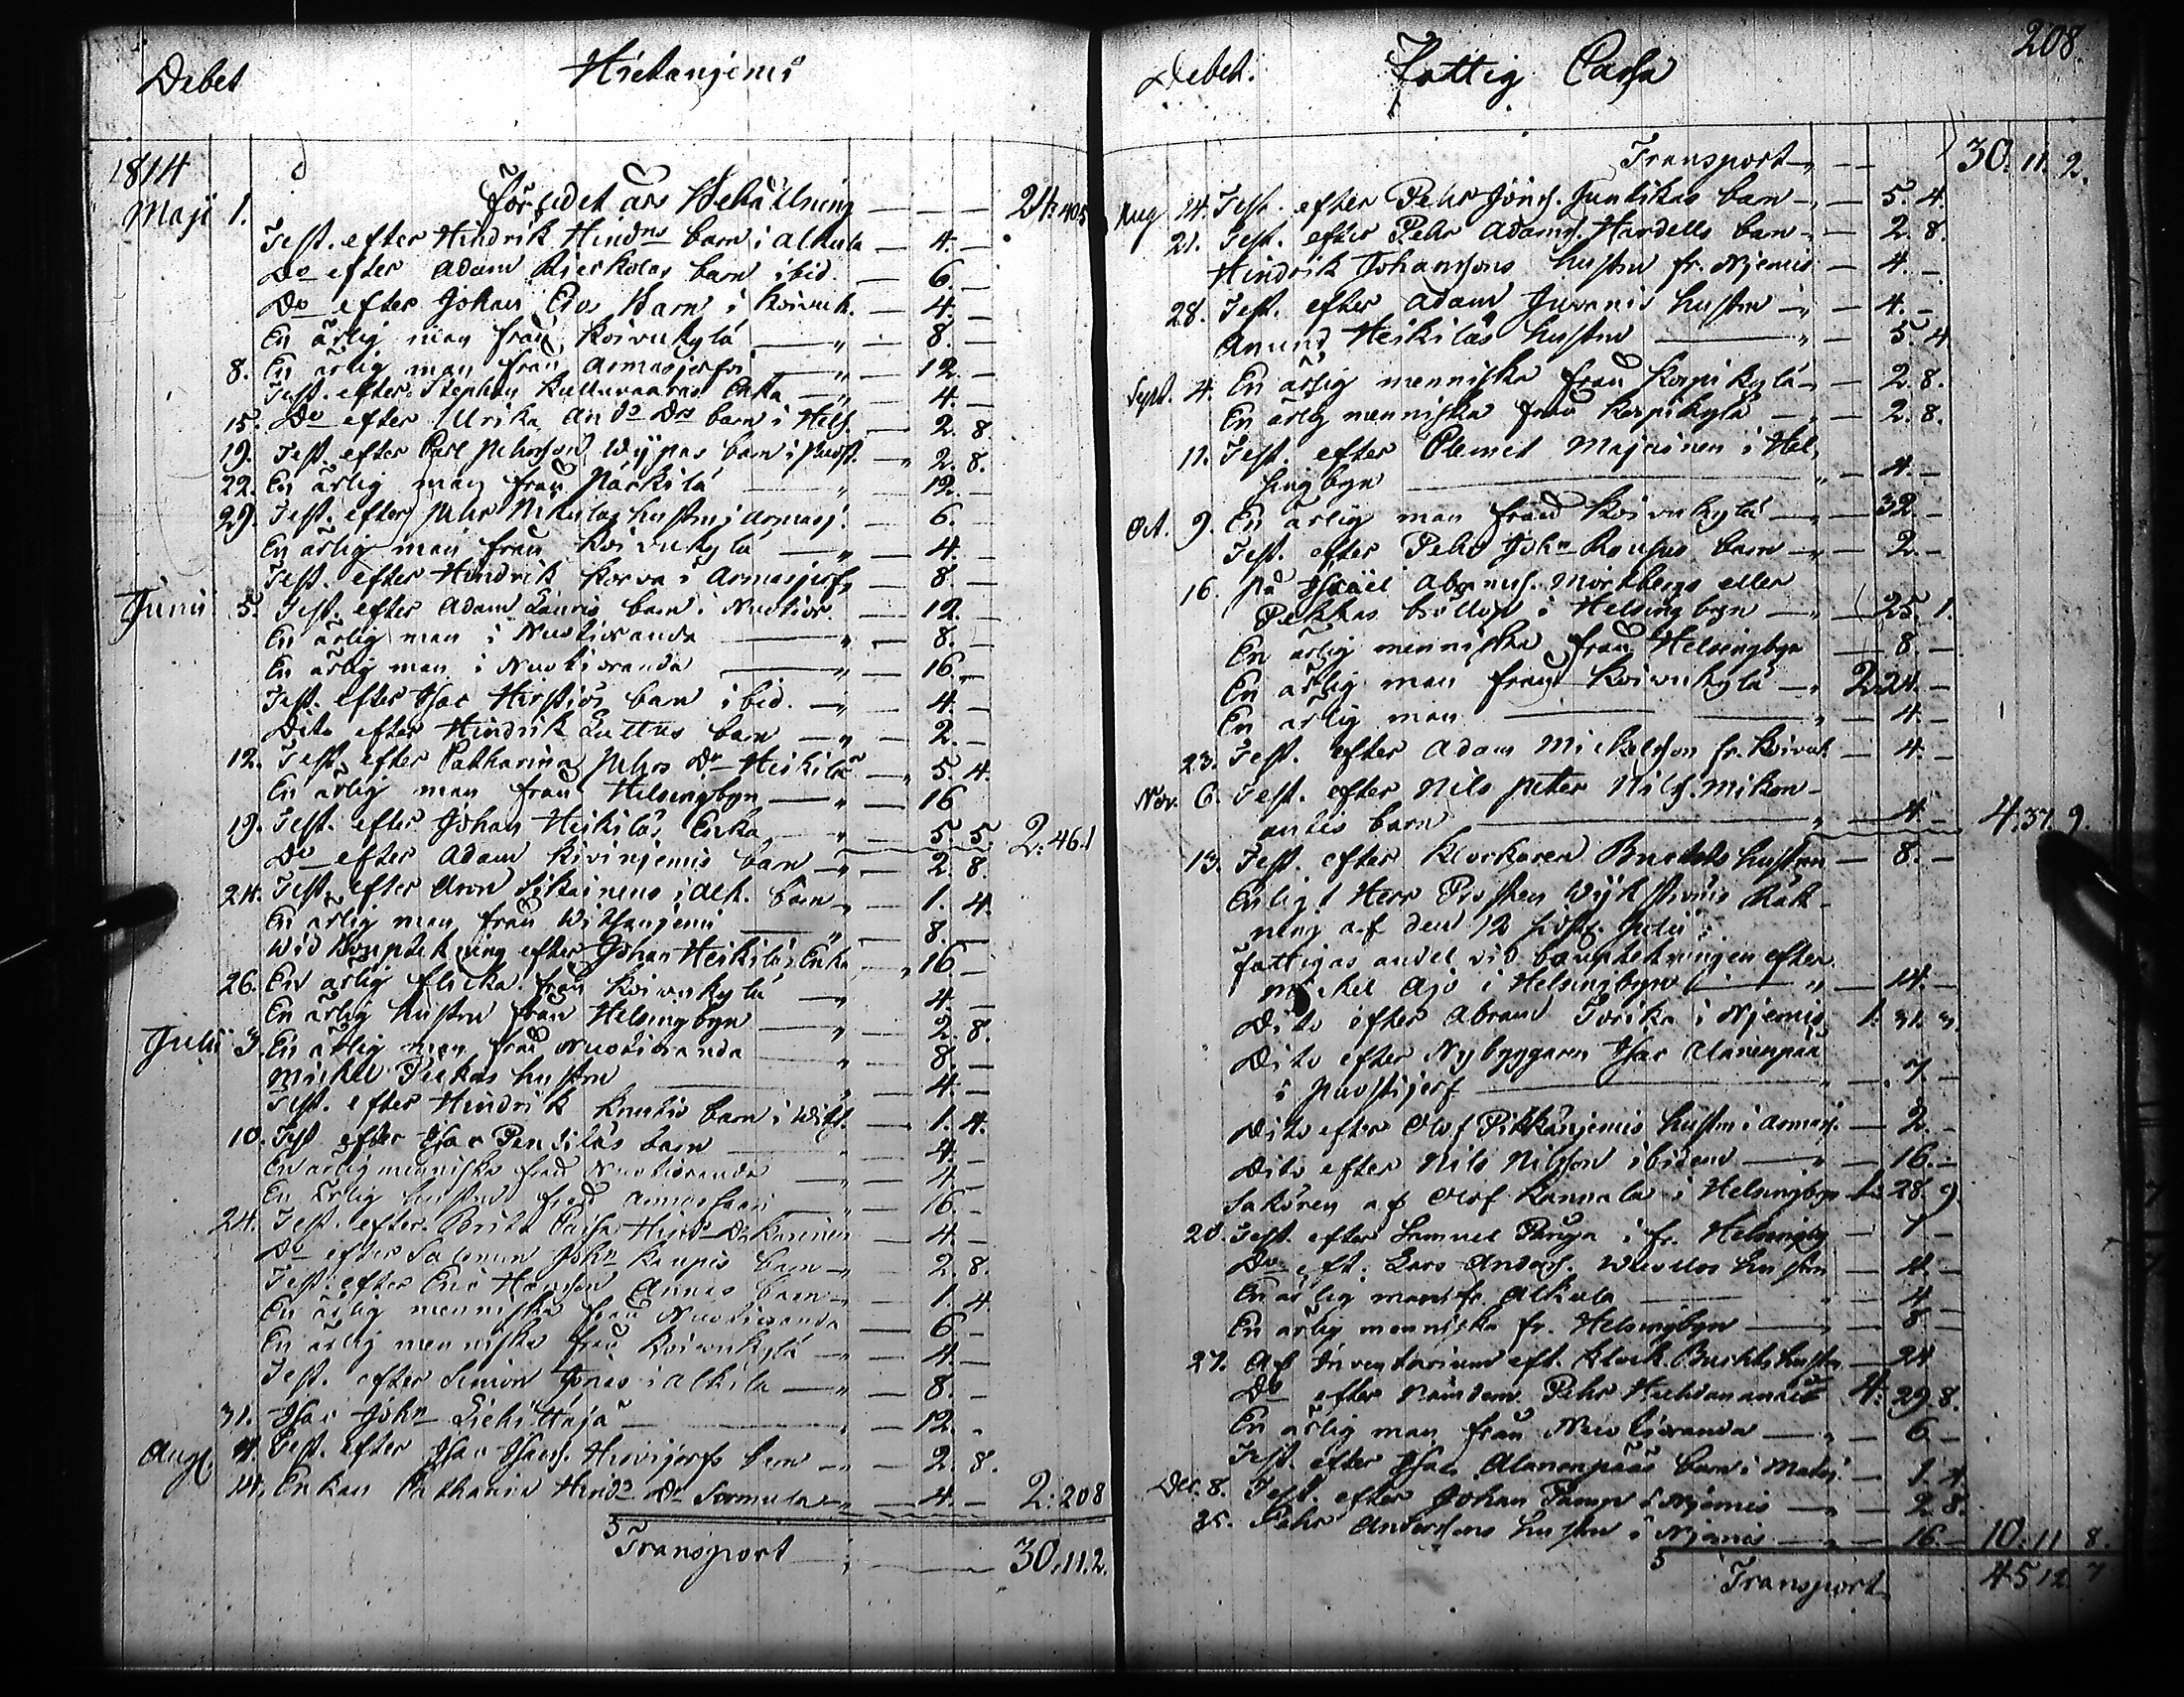 Debet Hietaniemi
1814
Maji 1. Förledet års Behållning — 24:40.5
Test. efter Hindrik Hindns barn i Alkula — 4. —
Do efter Adam Kierkolas barn ibid. — 6. —
Do efter Johan Bios Barn i Koivuk. — 4. —
En ärlig man från Koivukylä — 8. —
8. En ärlig man från Armasjerfvi — 12. —
Test. efter Stephan Kulluvaaras Enka — 4. —
15. Do efter Ulrika And. Drs barn i Hels. — 2. 8.
19. Test. efter Carl Pehrsson Wypas barn i — 2. 8.
22. En ärlig man från Närkilä — 12. —
29. Test. efter Pehr Nikulas hustru i Armasj. — 6. —
En ärlig man från Koivukylä — 4. —
Test. efter Hindrik Korva i Armasjerf — 8. —
Junii 5. Test. efter Adam Lauris barn i Nuotior. — 12. —
En ärlig man i Nuotioranda — 8. —
En ärlig man i Nuotioranda — 16. —
Test. efter Isac Hirstiös barn ibid. — 4. —
Dito efter Hindrik Luttus barn — 2. —
12. Test. efter Catharina Pehrs Dr Heikilä — 5. 4.
En ärlig man från Helsingbyn — 16
19. Test. efter Johan Heikiläs Enka — 5. 5 2:46.1
Do efter Adam Kiviniemis barn — 2. 8.
24. Test. efter Aron Sikainens i Alk. barn — 1. 4.
En ärlig man från Witsaniemi — 8. —
Wid Bouptekning efter Johan Heikiläs Enka — 16 —
26. En ärlig flicka från Koivukylä — 4. —
En ärlig hustru från Helsingbyn — 2. 8.
Julii 3. En ärlig man från Nuotioranda — 8. —
Mickel Pekkas hustru — 4. —
Test. efter Hindrik Knutis barn i Wits. — 1. 4.
10. Test efter Isac Pentiläs barn — 4. —
En ärlig menniska från Nuotioranda — 4 —
En ärlig hustru från — 16. —
24. Test. efter Brita Caisa Hindr. Dr — 4. —
Do efter Salomon Johns Kaupis barn — 2. 8.
Test. efter Eric Hansson Annas barn — 1. 4
En ärlig menniska från Nuotioranda — 6 —
En ärlig menniska från Koivukylä — 4. —
Test. efter Simon Jönas i Alkula — 8. —
31. Isac Johns Liehittäjä — 12. —
Aug. 4. Test. efter Isac Isacs. Hirvijerfs barn — 2. 8.
14. Enkan Catharina Hinds Dr Sormula — 4. — 2:208
Transport — 30.11.2.
208.
Debet. Fattig Cassa
Transport — 30. 11. 2.
Aug 14. Test. efter Pehr Jöns. Juntikas barn — 5. 4.
21. Test. efter Pehr Adams. Hardells barn — 2. 8.
Hindrik Johanssons hustru fr. Njemis — 4. —
28. Test. efter Adam Juvanis hustru — 4. —
Amund Heikiläs hustru — 5. 4
Sept. 4. En ärlig menniska från Korpikylä — 2. 8.
En ärlig menniska från Korpikylä — 2. 8.
11. Test. efter Clemet Majainen i Hel-
singbyn — 4 —
Oct. 9. En ärlig man från Koivukylä — 32 —
Test. efter Pehr Johns barn — 2. —
16. På Israel Abrams. Mörtbergs eller
Pekkas bröllop i Helsingbyn — 25. 1.
En ärlig menniska från Helsingbyn — 8 —
En ärlig man från Koivukylä — 2.24. —
En ärlig man — 4. —
23. Test. efter Adam Mickelsson fr. Koivuk. — 4. —
Nov. 6. Test. efter Nils Peter Nils. Mikon-
anttis barn — 4 — 4.37. 9.
13. Test. efter Klockaren Buchts hustru — 8. —
Enligt Herr Prosten Wijkströms Räk-
ning af den 12 sidstl. Julii:
fattigas andel vid bouptekningen efter
Mickel Ajo i Helsingbyn — 14. —
Dito efter Abram i Njemis 1. 31. 3.
Dito efter Nybyggaren Isac Alainenpää
i Puostijerf — 7. —
Dito efter Olof Pikkäniemis hustru i Armasj. — 2. —
Dito efter Nils Nilsson ibidem — 16. —
Saköres af Olof Kannala i Helsingbyn 1: 28. 9
20. Test. efter Samuel i fr. Helsingby — 1 —
Do eft. Lars Anders. hustru — 4. —
En ärlig man fr. Alkula — 4 —
En ärlig menniska fr. Helsingbyn — 8 —
27. Af Inventarium eft. Klock. Buchts hustru — 24
Do efter Nämdem. Pehr 4: 29. 8.
En ärlig man från Nuotioranda — 6 —
Test. efter Isac Alanenpääs barn i — 1 4.
Dec. 8. Test. efter Johan i Njemis — 2 8.
25. Pehr Anderssons hustru i Njemis — 16. — 10:11 8.
Transport 45 12 7